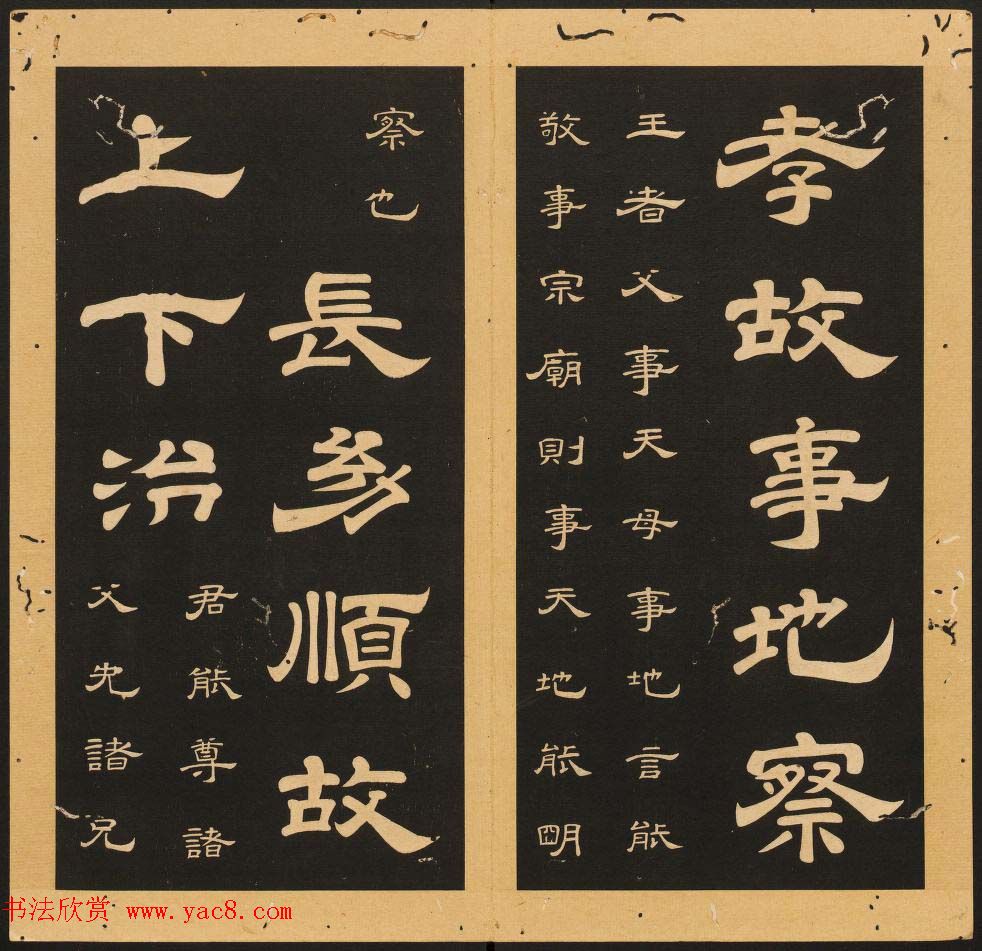 孝故事地察
王者父事天母事地言能
敬事宗廟則事天地能明
察也
長幼順故
上下治
君能尊諸
父先諸兄
书法欣赏 www.yac8.com